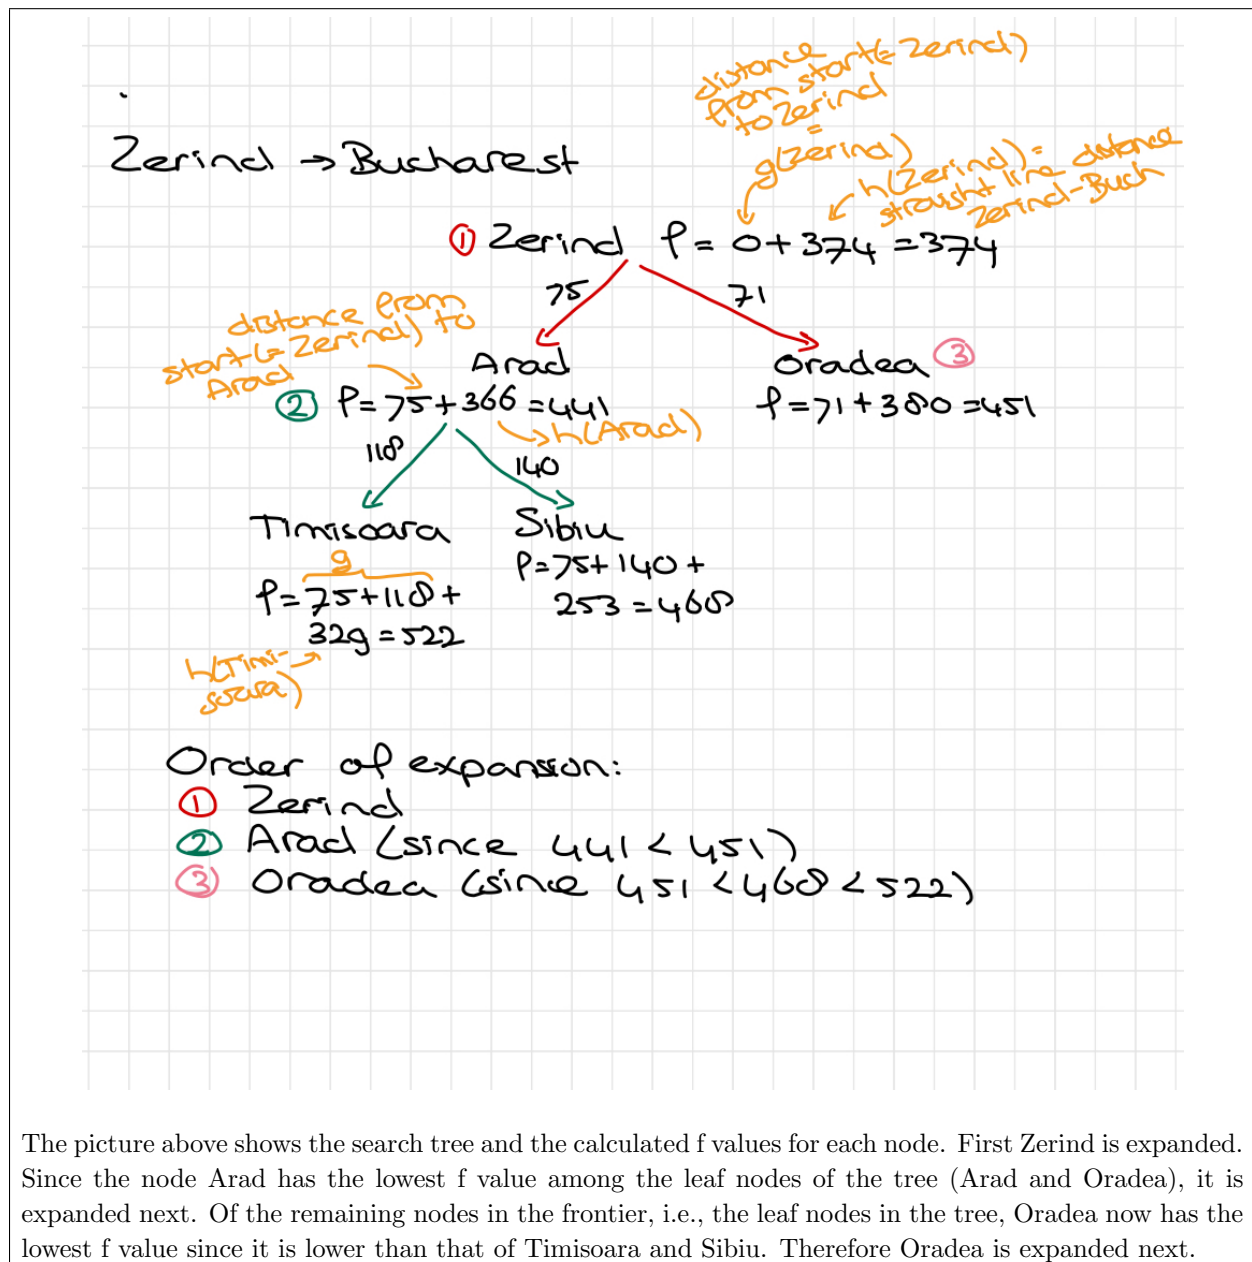 distance
from start(= Zerind)
to Zerind
=
g(Zerind)
h(Zerind) =
straight line distance
Zerind-Buch
Zerind → Bucharest
① Zerind f = 0 + 374 = 374
75
71
distance from
start(= Zerind) to
Arad
Arad
Oradea ③
② f = 75 + 366 = 441
f = 71 + 380 = 451
h(Arad)
118
140
Timisoara
Sibiu
g
f = 75 + 118 +
329 = 522
f = 75 + 140 +
253 = 468
h(Timi-
soara)
Order of expansion:
① Zerind
② Arad (since 441 < 451)
③ Oradea (since 451 < 468 < 522)
The picture above shows the search tree and the calculated f values for each node. First Zerind is expanded.
Since the node Arad has the lowest f value among the leaf nodes of the tree (Arad and Oradea), it is
expanded next. Of the remaining nodes in the frontier, i.e., the leaf nodes in the tree, Oradea now has the
lowest f value since it is lower than that of Timisoara and Sibiu. Therefore Oradea is expanded next.